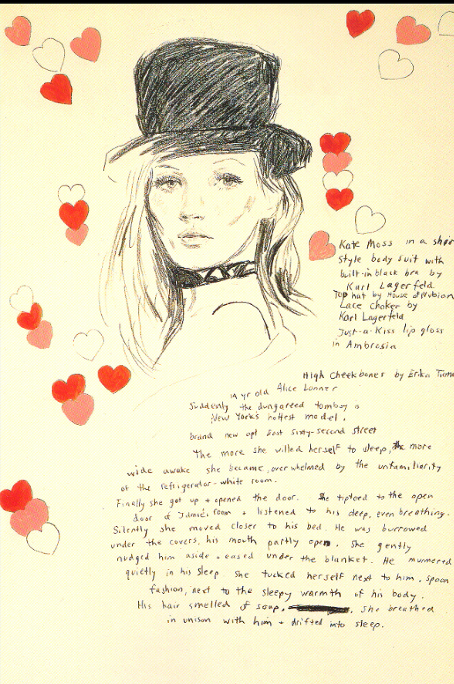 Kate Moss in a shirt
style body suit with
built-in black bra by
Karl Lagerfeld
Top hat by House of Nubian
Lace choker by
Karl Lagerfeld
Just-a-Kiss lip gloss
in Ambrosia
High Cheekbones by Erika
14 yr old Alice Lonner
Suddenly the dungareed tomboy is
New York's hottest model.
brand new apt East sixty-second street
The more she willed herself to sleep, the more
wide awake she became, overwhelmed by the unfamiliarity
of the refrigerator-white room.
Finally she got up + opened the door. She tiptoed to the open
door of Jamie's room + listened to his deep, even breathing.
Silently she moved closer to his bed. He was burrowed
under the covers, his mouth partly open. She gently
nudged him aside + eased under the blanket. He murmered
quietly in his sleep She tucked herself next to him, spoon
fashion, next to the sleepy warmth of his body.
His hair smelled of soap, She breathed
in unison with him + drifted into sleep.